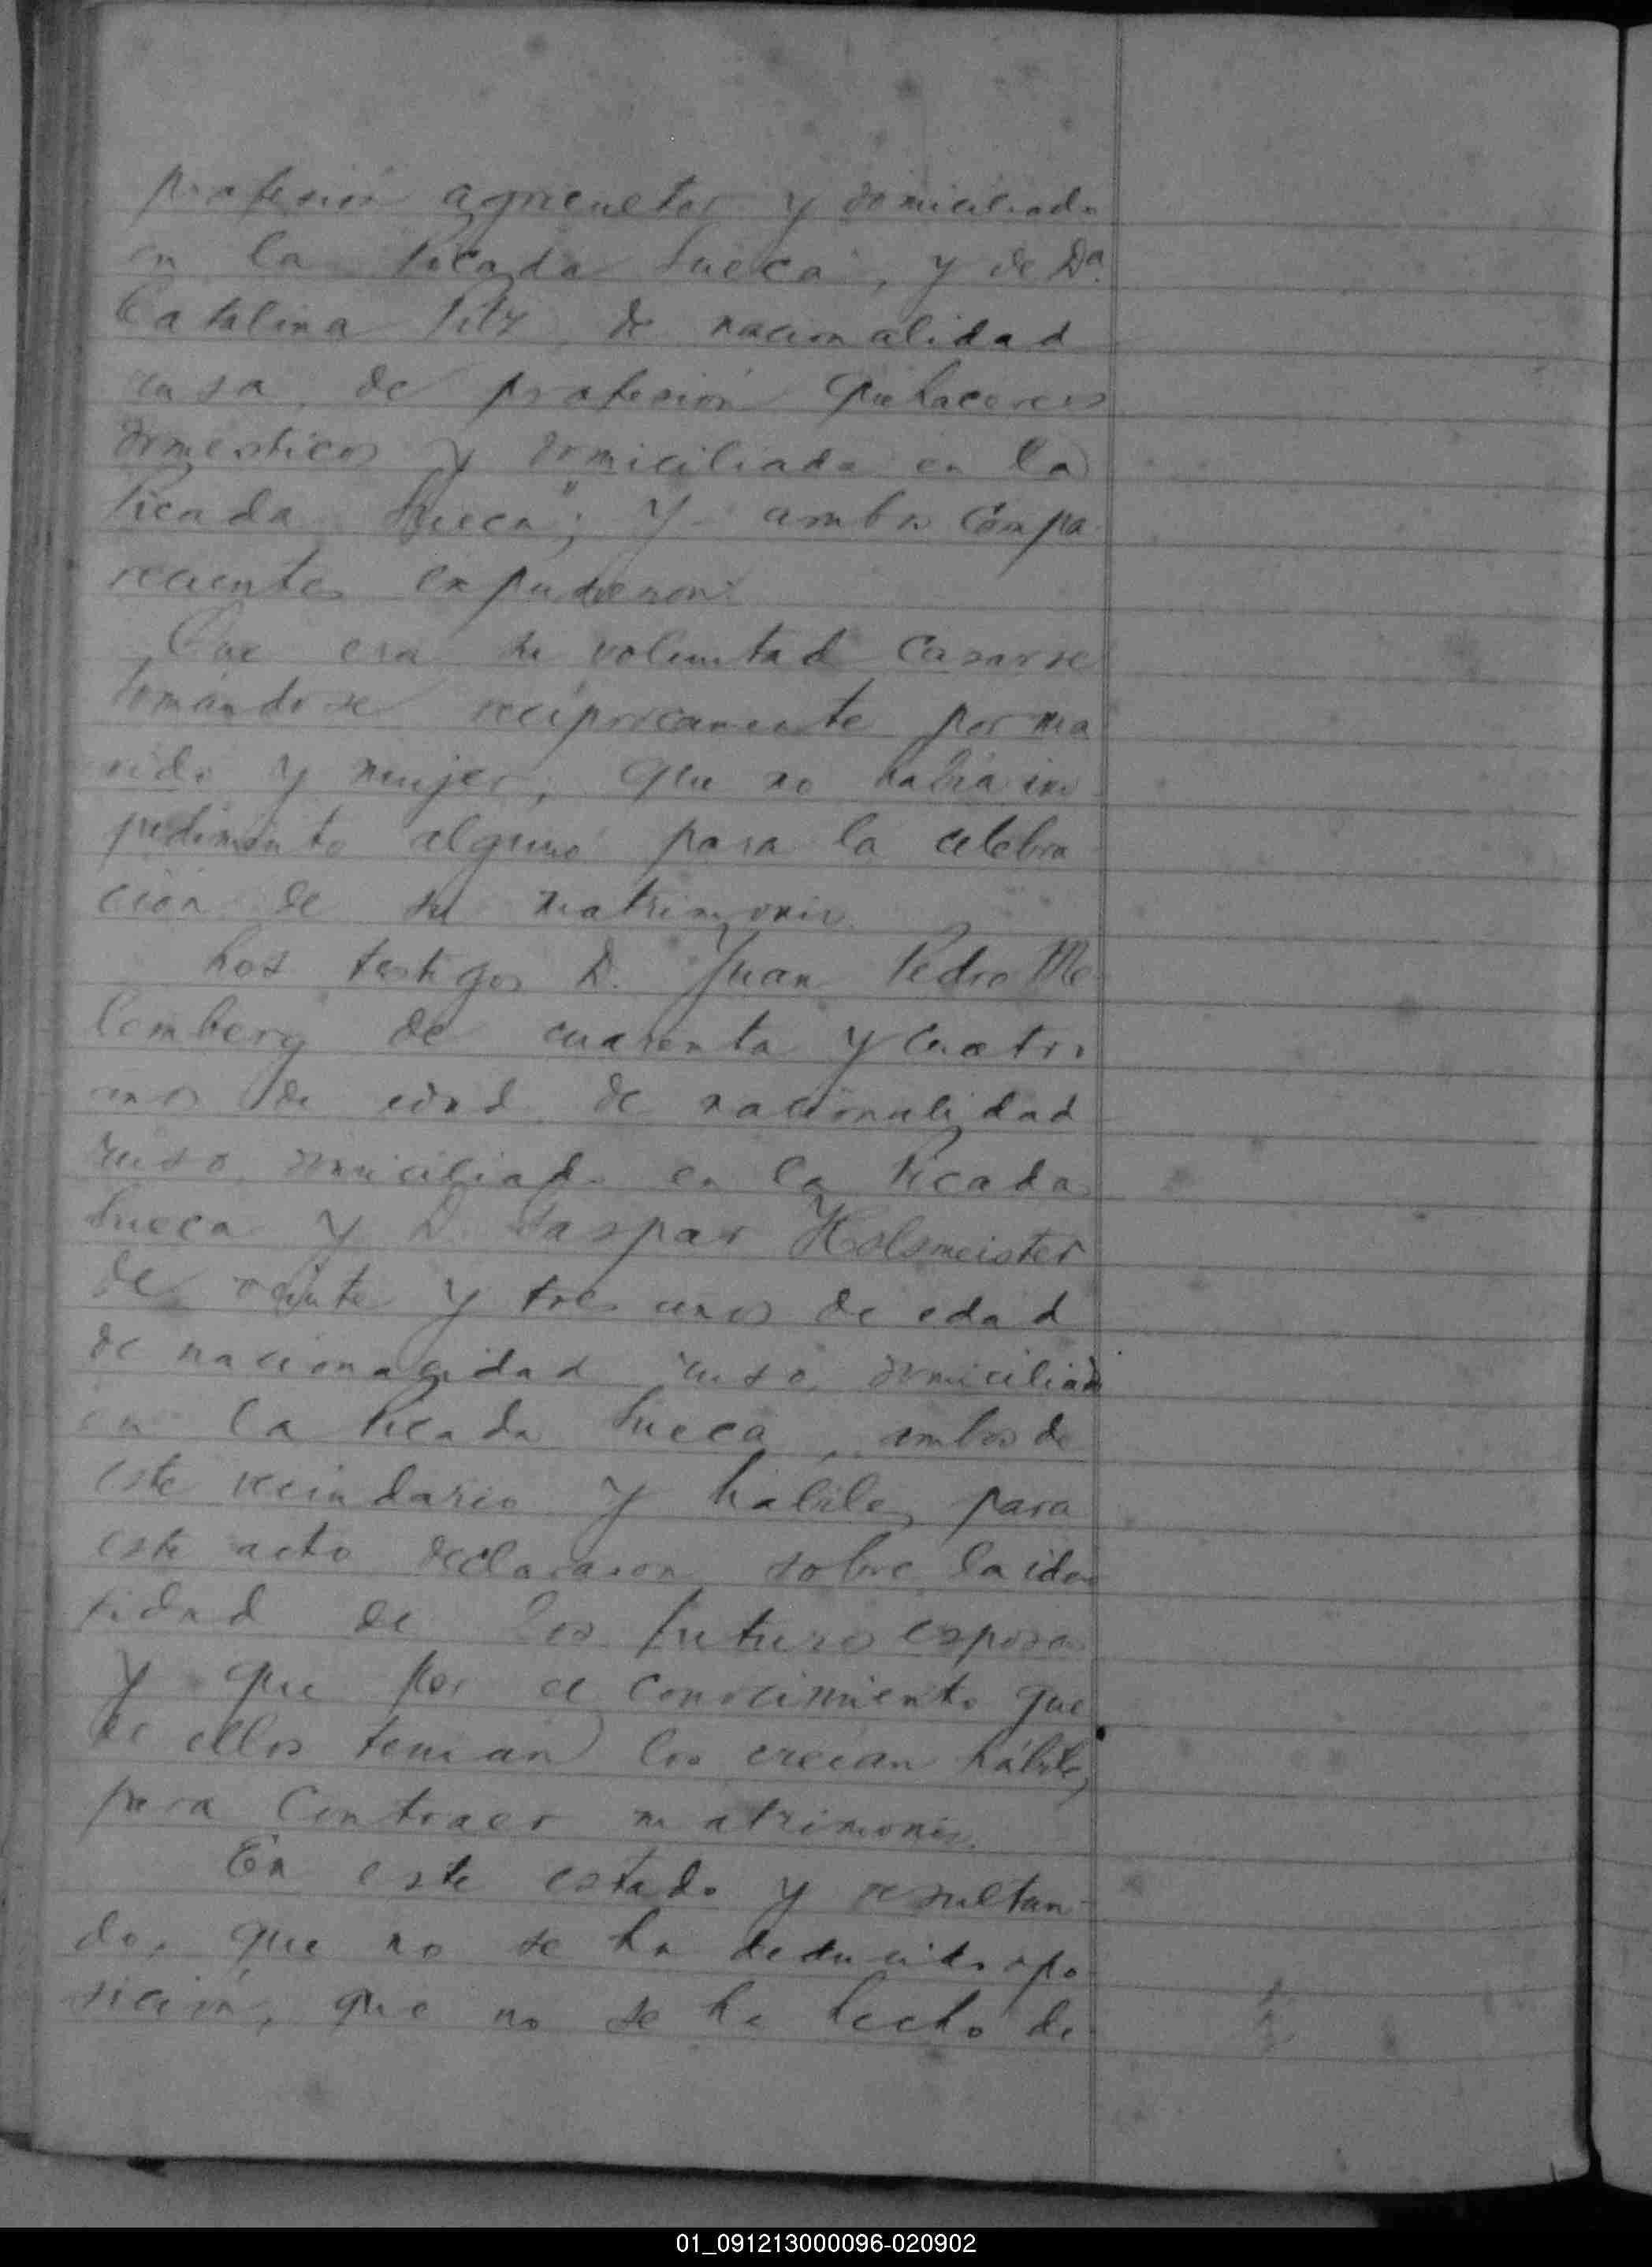 profesión agricultor y domiciliado
en la Picada Sueca, y de Da.
Catalina de nacionalidad
rusa, de profesión quehaceres
domesticos y domiciliada en la
Picada Sueca"; y ambos compa
recientes expusieron:
Que era su voluntad casarse
tomándose recíprocamente por ma
rido y mujer, que no había im
pedimento alguno para la celebra
ción de su matrimonio.
Los testigos D. Juan Pedro Me
lemberg de cuarenta y cuatro
anos de edad de nacionalidad
ruso, domiciliado en la Picada
Sueca y D. Gaspar Holsmeister
de veinte y tres anos de edad
de nacionalidad ruso, domiciliado
en la Picada Sueca, ambos de
este vecindario y habiles para
este acto declararon sobre la iden
tidad de los futuros esposos
y que por el conocimiento que
de ellos tenian los creian hábiles
para contraer matrimonio.
En este estado y resultan-
do, que no se ha deducido opo
sición, que no se ha hecho de-
01_091213000096-020902